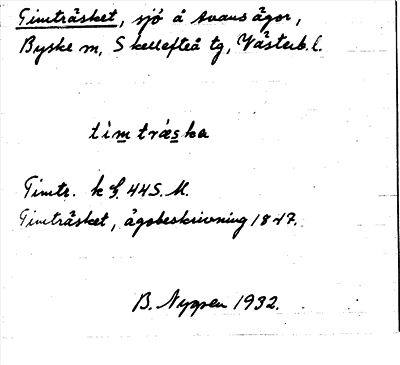 Timträsket, sjö å Avans ägor,
Byske sn, Skellefteå tg, Västerb. l.
timträska
Timtr. k 44 S. M.
Timträsket, ägobeskrivning 1847.
B. Nyppen 1932.